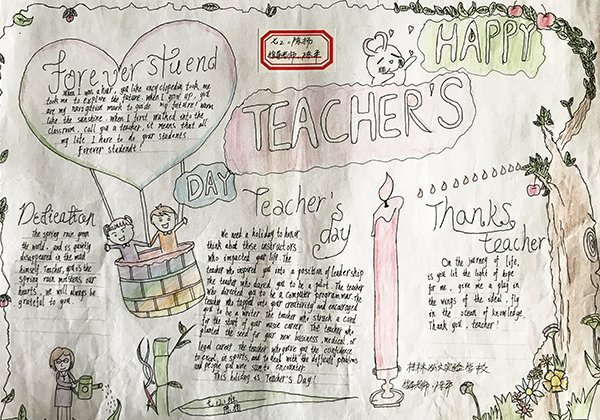 HAPPY
TEACHER'S
DAY
Forever stuend
When I was a kid, you like encyclopedia took me
took me to explore the future. when I grow up, you
are my navigation mark to guide my future! Warm
like the sunshine. When I first walked into the
classroom, call you a teacher, it means that all
my life I have to do your students
forever students!
Dedication
The spring rain green
the world, and is quietly
disappeared in the mud
himself. Teacher, you is the
spring rain moistens our
hearts, we will always be
grateful to you.
Teacher's
day
We need a holiday to honor
think about these instructors
who impacted your life. The
teacher who inspired you into a position of leadership
The teacher who saved you to be a pilot. The teacher
who directed you to be a computer programmer. the
teacher who tapped into your creativity and encouraged
you to be a writer. The teacher who struck a cord
for the start of your music career. The teacher who
planted the seed for your new business, medical, or
legal career. The teacher who gave you the confidence
to excel in sports, and to deal with the difficult problems
and people you were sure to encounter.
This holiday is Teacher's Day!
Thanks,
teacher
On the journey of life,
is you lit the light of hope
for me, give me a plug in
the wings of the ideal, fly
in the ocean of knowledge.
Thank you, teacher!